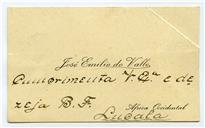 José Emilio do Valle
Cumprimenta V. Exª e de-
zeja B. F.
Africa Occidental
Lucala